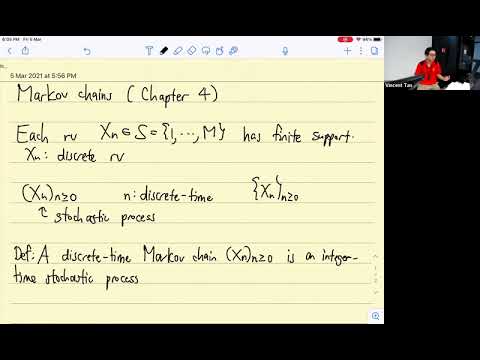 6:05 PM Fri 5 Mar
96%
5 Mar 2021 at 5:56 PM
Markov chains (Chapter 4)
Each rv Xₙ ∈ S = {1, ..., M} has finite support.
Xₙ: discrete rv
(Xₙ)ₙ≥₀ n: discrete-time {Xₙ}ₙ≥₀
↑ stochastic process
Def: A discrete-time Markov chain (Xₙ)ₙ≥₀ is an integer-
time stochastic process
Vincent Tan